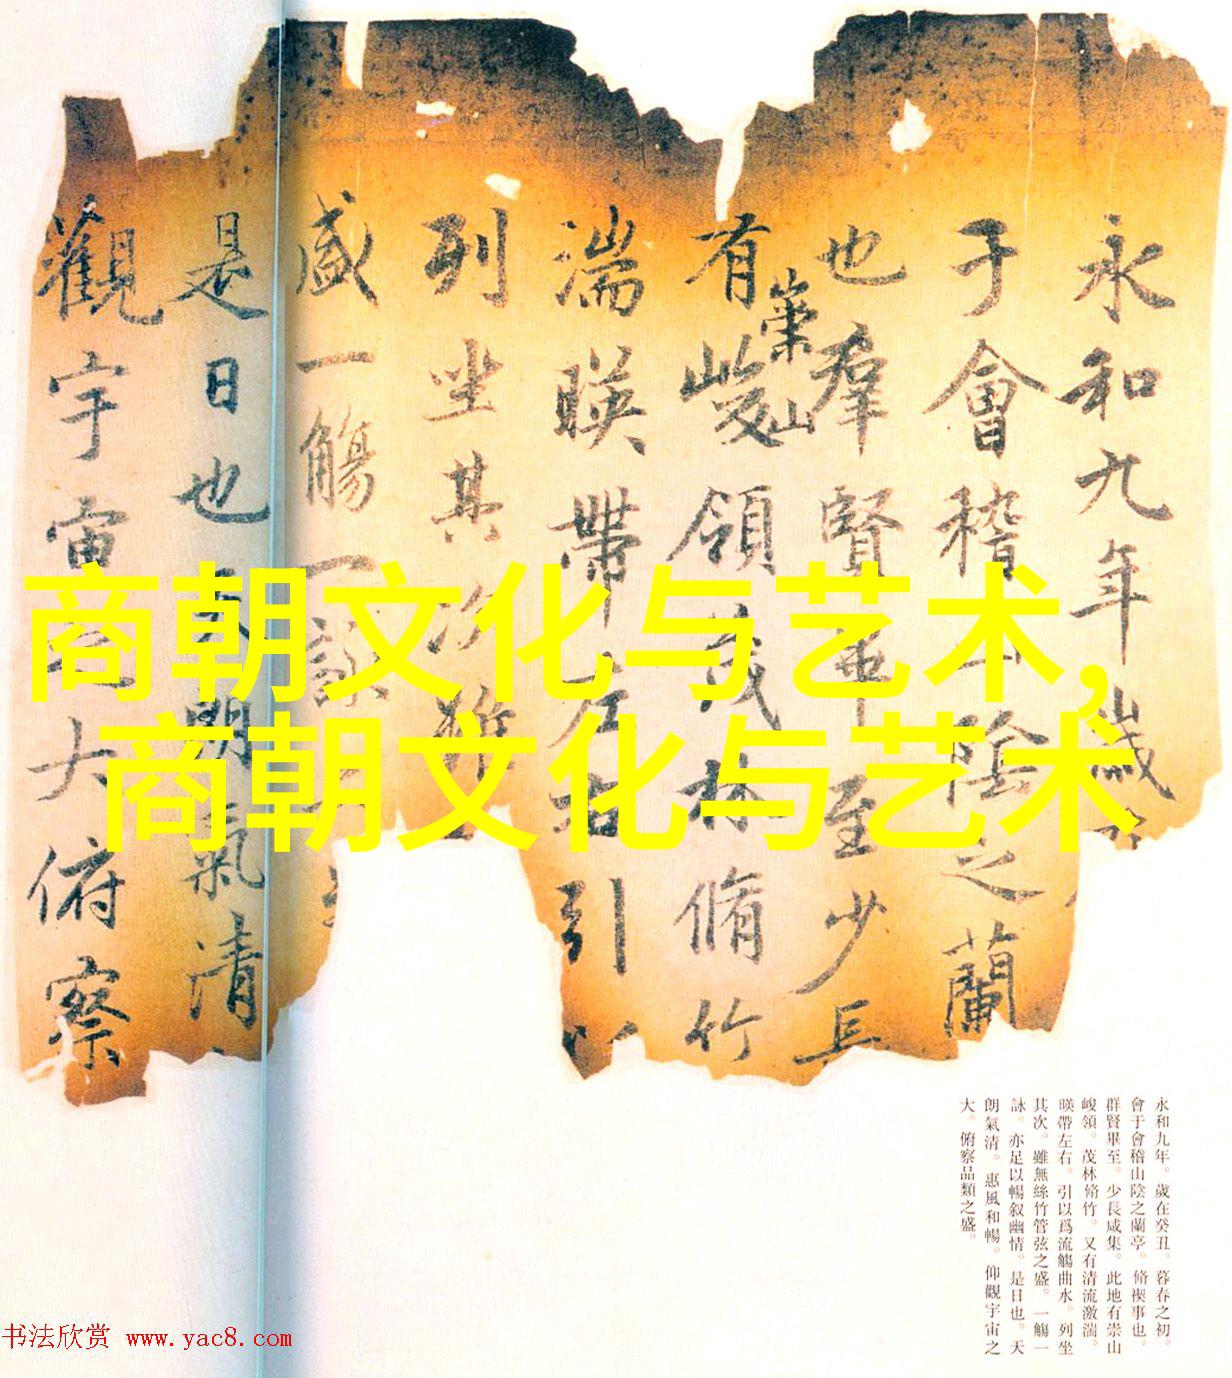 永和九年歲
于會稽山陰之蘭
也羣賢畢至少長
崇山
有峻領茂林脩竹
湍暎帶左右引以
列坐其次雖
盛一觴一詠
是日也天朗氣清
觀宇宙之大俯察
商朝文化与艺术,
商朝文化与艺术
永和九年。歲在癸丑。暮春之初。
會于會稽山陰之蘭亭。脩禊事也。
群賢畢至。少長咸集。此地有崇山
峻領。茂林脩竹。又有清流激湍。
暎帶左右。引以爲流觴曲水。列坐
其次。雖無絲竹管弦之盛。一觴一
詠。亦足以暢叙幽情。是日也。天
朗氣清。惠風和暢。仰觀宇宙之
大。俯察品類之盛。
书法欣赏 www.yac8.com